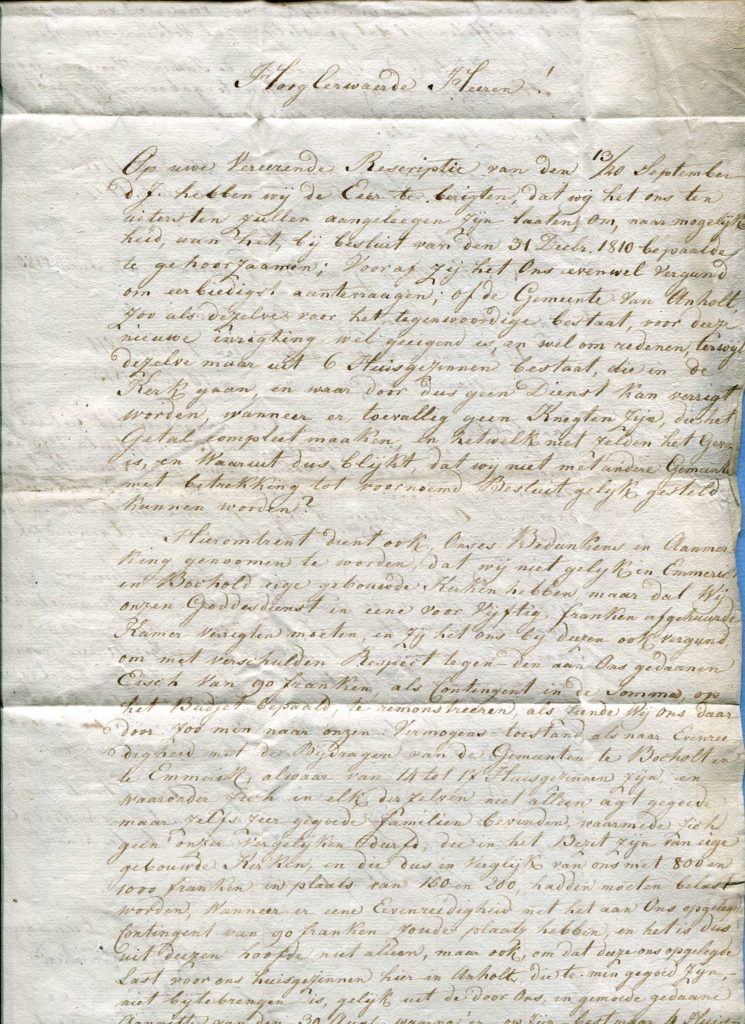 HoogEerwaerde Heeren!
Op uwe Vereerende Rescriptie van den 13/20 September
d. J. hebben wij de Eer te berigten, dat wij het ons ten
uitersten zullen aangeleegen zijn laaten, om, naar mogelijk
heid, aan het, bij besluit van den 31 Decbr. 1810 bepaalde
te gehoorzaamen; Vooraf zij het ons evenwel Vergund
om eerbiedigst aantevraagen; of de Gemeente van Anholt,
zoo als dezelve voor het tegenwoordige bestaat, voor deeze
nieuwe inrigting wel geeigend is, en wel om redenen, terwyl
dezelve maar uit 6 Huisgezinnen bestaat, die in de
Kerk gaan, en waar door dus geen Dienst kan verrigt
worden, wanneer er toevallig geen Knegten zyn, die het
Getal compleet maaken, en hetwelk niet zelden het
is, en Waaruit dus blijkt, dat wij niet met andere
met betrekking tot voornoemd Besluit gelijk gesteld
kunnen worden?
Hieromtrent dient ook, Onses Bedunkens in Aanmer
king genoomen te worden, dat wij niet gelijk in Emmerik
en Bocholt eige gebouwde Kerken hebben, maar dat Wij
onzen Goddesdienst in eene voor Vijftig franken afgehuurde
Kamer verrigten moeten, en zij het ons bij deezen ook vergund
om met verschulden Respect tegen den aan Ons gedaanen
Eisch van 90 franken, als Contingent in de Somma op
het Budjet bepaald, te remonstreeren, als zijnde Wij ons daar
door zoo min naar onzen Vermogens-toestand als naar Evenree
digheid met de Bijdragen van de Gemeenten te Bocholt en
te Emmerik, alwaar van 14 tot 17 Huisgezinnen zijn en
waaronder zich in elk derzelven niet alleen agt gegoede
maar zelfs zeer gegoede familien bevinden, waarmede zich
geen onzer vergelyken durfd, die in het Bezit zijn van eige
gebouwde Kerken, en die dus in Verglijk van ons met 800 en
1000 franken in plaats van 150 en 200, hadden moeten belast
worden, Wanneer er eene Evenreedigheid met het aan Ons opgelegde
Contingent van 90 franken zoude plaats hebben, en het is dus
uit deezen hoofde niet alleen, maar ook om dat deeze ons opgelegde
Last voor ons huisgezinnen hier in Anholt, die te min gegoed zyn,
niet bijtebrengen is, gelijk uit de door Ons, in gemoede gedaane
van den 30 Aug.